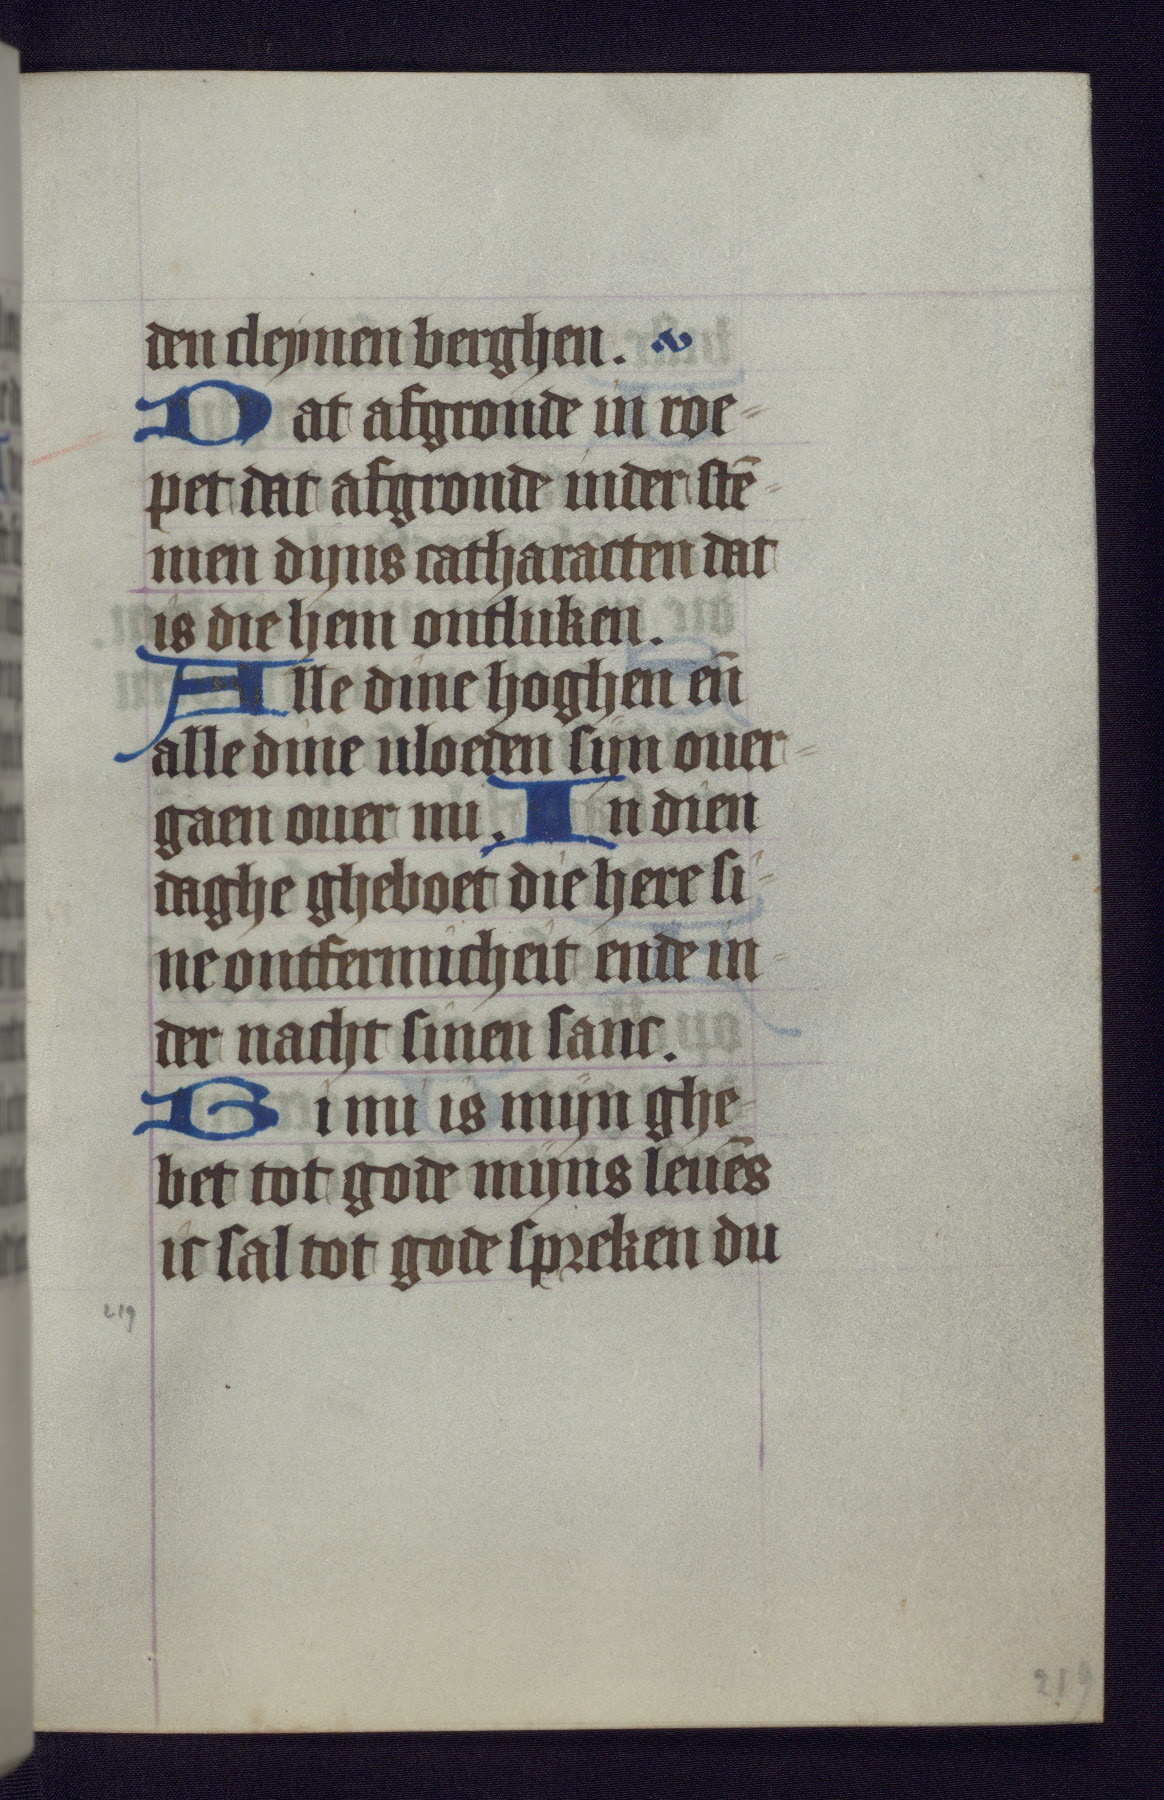 den cleynen berghen.
Dat afgronde in roe-
pet dat afgronde in der stē-
men dyns catharacten dat
is die hem ontluken.
Alle dine hoghen eñ
alle dine vloeden sijn ouer-
gaen ouer mi. In dien
daghe gheboet die here si-
ne ontfermicheit ende in-
der nacht sinen sanc.
Bi mi is mijn ghe-
bet tot gode mijns leuēs
ic sal tot gode spreken du
219
219